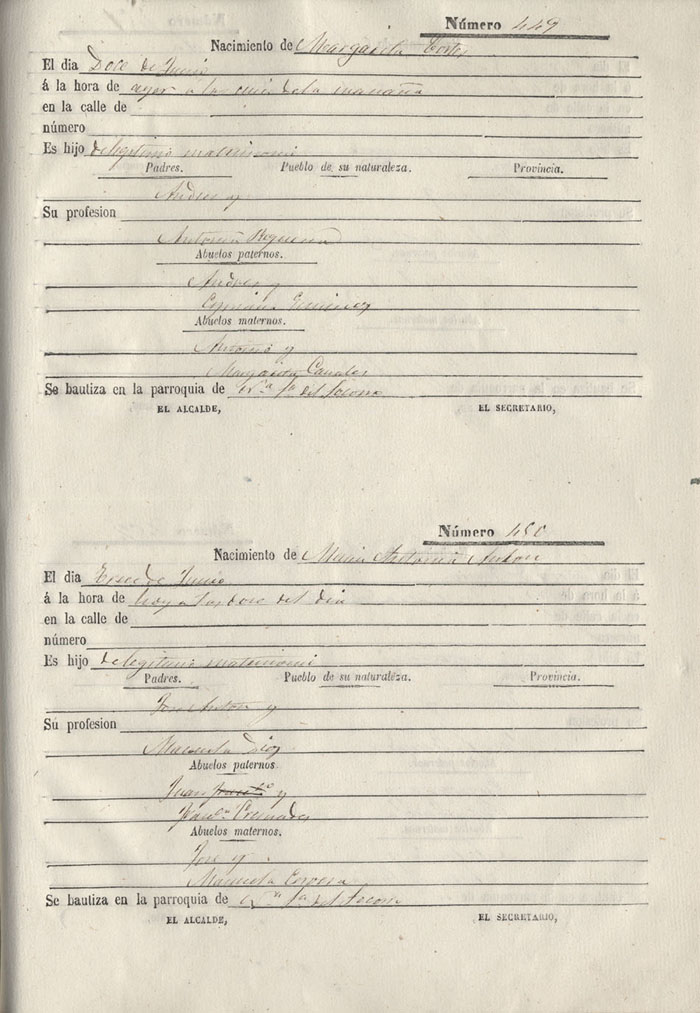 Número 449
Nacimiento de Margarita Cortes
El dia Doce de Junio
á la hora de ayer a las cinco de la mañana
en la calle de
número
Es hijo de legitimo matrimonio
Padres. Pueblo de su naturaleza. Provincia.
Andres y
Su profesion
Antonia
Abuelos paternos.
Andres y
Abuelos maternos.
Antonio y
Margarita Canales
Se bautiza en la parroquia de Nra Sa del Socorro
EL ALCALDE, EL SECRETARIO,
Número 450
Nacimiento de Maria Antonia Anton
El dia Trece de Junio
á la hora de hoy a las doce del dia
en la calle de
número
Es hijo de legitimo matrimonio
Padres. Pueblo de su naturaleza. Provincia.
Jose Anton y
Su profesion
Manuela
Abuelos paternos
Juan y
Abuelos maternos.
Jose y
Manuela
Se bautiza en la parroquia de Nra Sa del Socorro
EL ALCALDE, EL SECRETARIO,